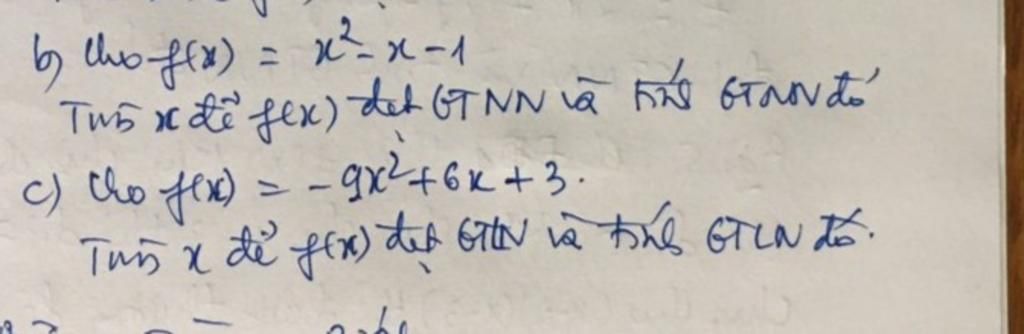 b) Cho f(x) = x² - x - 1
Tìm x để f(x) đạt GTNN và tính GTNN đó
c) Cho f(x) = -9x² + 6x + 3.
Tìm x để f(x) đạt GTLN và tính GTLN đó.